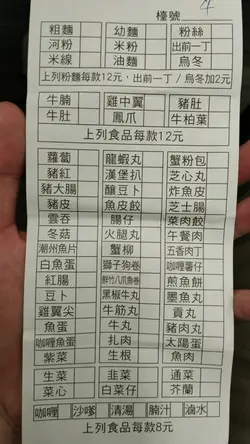 檯號 4
粗麵 幼麵 粉絲
河粉 米粉 出前一丁
米線 油麵 烏冬
上列粉麵每款12元，出前一丁/烏冬加2元
牛腩 雞中翼 豬肚
牛肚 鳳爪 牛柏葉
上列食品每款12元
蘿蔔 龍蝦丸 蟹粉包
豬紅 漢堡扒 芝心丸
豬大腸 釀豆卜 炸魚皮
豬皮 魚皮餃 芝士腸
雲吞 腸仔 菜肉餃
冬菇 火腿丸 午餐肉
潮州魚片 蟹柳 五香肉丁
白魚蛋 獅子狗卷 咖喱薯仔
紅腸 鮮竹八爪魚卷 煎魚餅
豆卜 黑椒牛丸 墨魚丸
雞翼尖 牛筋丸 貢丸
魚蛋 牛丸 豬肉丸
咖喱魚蛋 扎肉 太陽蛋
紫菜 生根 魚肉
生菜 韮菜 通菜
菜心 白菜仔 芥蘭
咖喱 沙嗲 清湯 腩汁 滷水
上列食品每款8元